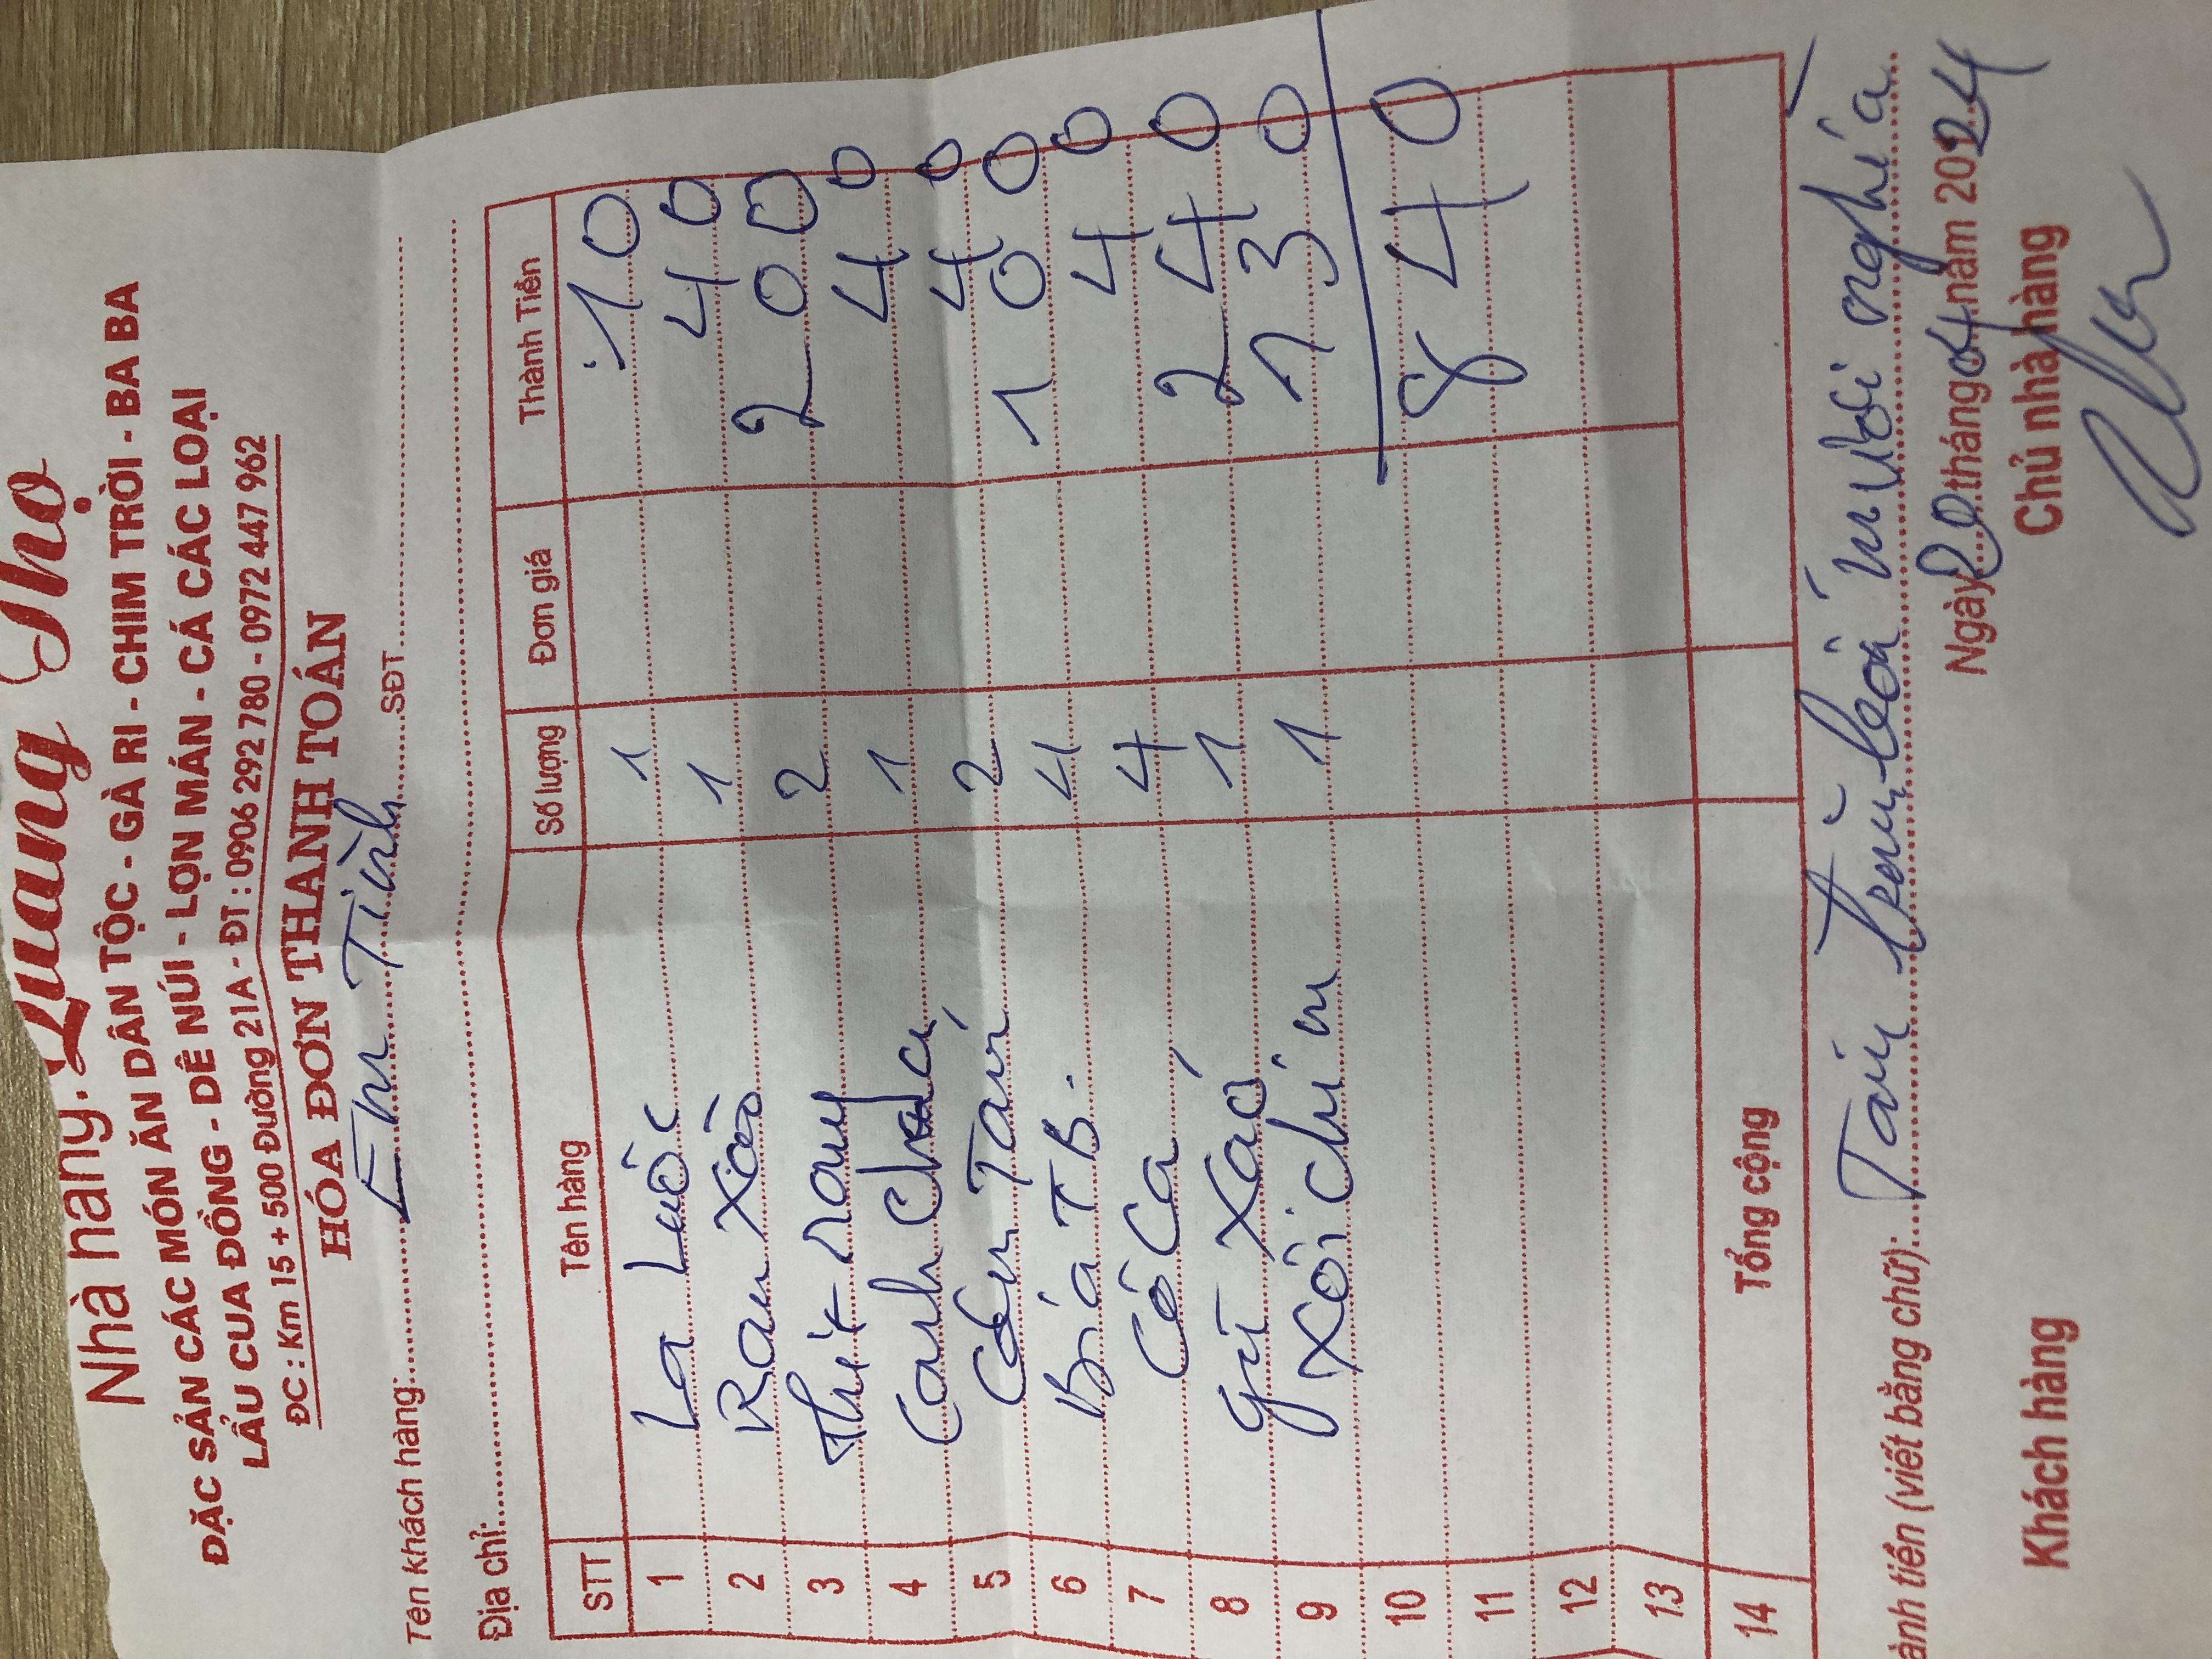 Nhà hàng: Quang Thọ
ĐẶC SẢN CÁC MÓN ĂN DÂN TỘC - GÀ RI - CHIM TRỜI - BA BA
LẨU CUA ĐỒNG - DÊ NÚI - LỢN MÁN - CÁ CÁC LOẠI
ĐC : Km 15 + 500 Đường 21A - ĐT : 0906 292 780 - 0972 447 962
HÓA ĐƠN THANH TOÁN
Tên khách hàng: Em SĐT
Địa chỉ:
STT Tên hàng Số lượng Đơn giá Thành Tiền
1 Lạ Luộc 1 10
2 Rau Xào 1 40
3 Thịt rang 2 200
4 Canh Chua 1 40
5 Cơm 2 40
6 Bia TB 4 100
7 Cô Ca 4 40
8 Xào 1 240
9 Xôi chim 1 130
10 840
11
12
13
14 Tổng cộng
ành tiền (viết bằng chữ): Tám trăm bốn mươi nghìn
Ngày 20 tháng 04 năm 2024
Khách hàng Chủ nhà hàng